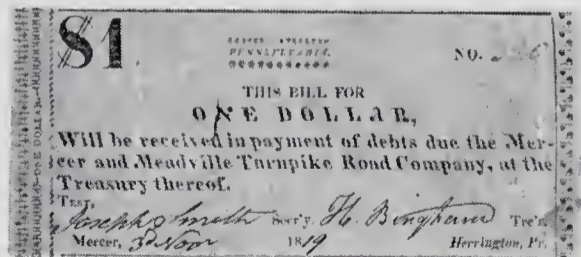 $1.
PENNSYLVANIA.
NO.
THIS BILL FOR
ONE DOLLAR,
Will be received in payment of debts due the Mer-
cer and Meadville Turnpike Road Company, at the
Treasury thereof.
TEST,
Joseph Smith Secr'y. H. Bingham Tre'r.
Mercer, 3d Novr 1819 Herrington, Pr.
ONE DOLLAR